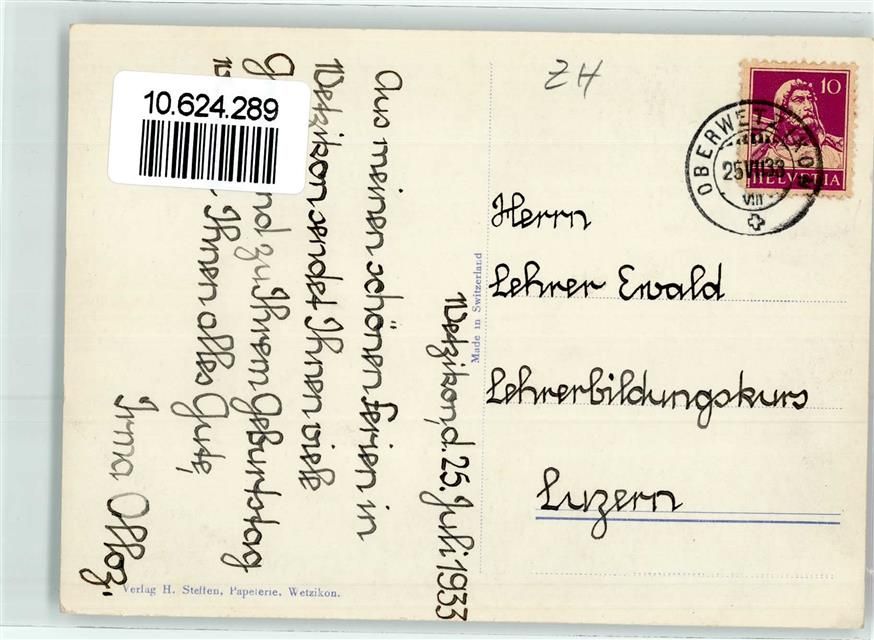 10.624.289
ZH
10
HELVETIA
OBERWETZIKON
25 VII 33
VIII
Wetzikon, d. 25. Juli 1933
Aus meinen schönen Ferien in
Wetzikon sendet Ihnen viele
und zu Ihrem Geburtstag
Ihnen alles Gute,
Irma
Herrn
Lehrer Ewald
Lehrerbildungskurs
Luzern
Made in Switzerland
Verlag H. Steffen, Papeterie, Wetzikon.